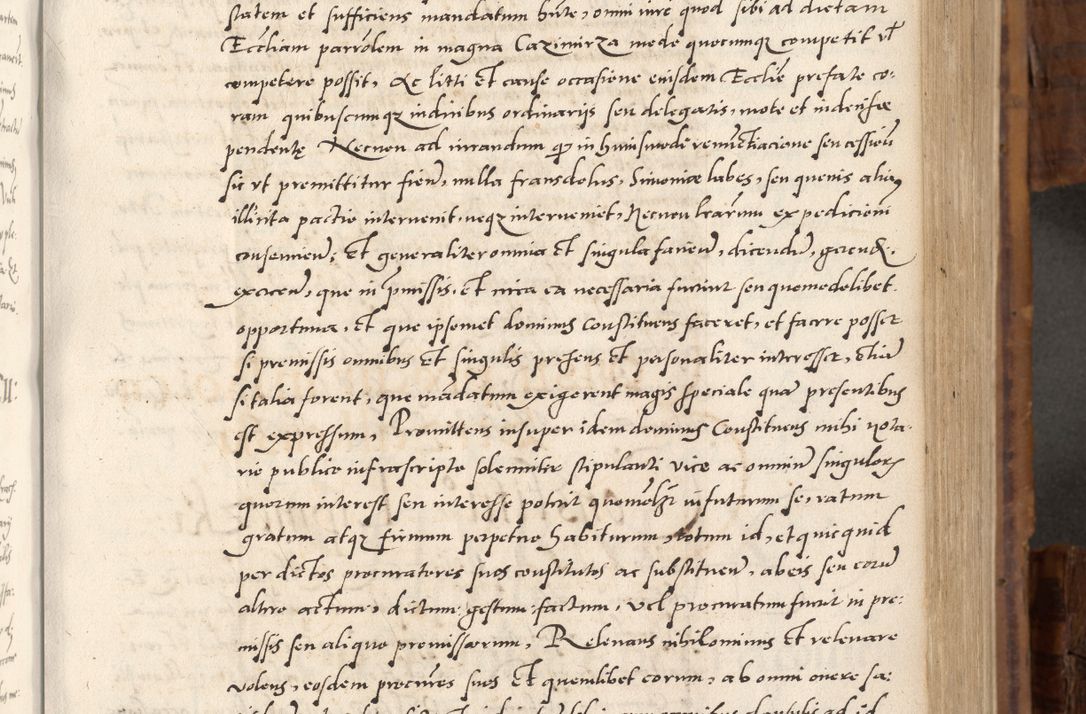 statem et sufficiens mandatum hñte, omni iure quod sibi ad dictam
Eccliam parrôlem in magna Cazimirza modo quocumqz competit vl
competere possit, Ac litti et cause occasione eiusdem Ecclie prefate co-
ram quibuscumqz iudicibus ordinarijs seu delegatis, mote et indecise
pendentę Necnon ad iurandum qz in huiusmodi renuntiacione seu cessioni
sic vt premittitur fiend, nulla fraus dolus, Simoniæ labes, seu quevis alia
illicita pactio intervenit, neqz interveniet, Necnon lrarum expedicioni
consenciend, Et generaliter omnia et singula faciend, dicend, gerend
exercend, que in pmissis, et circa ea necessaria fuerint seu quomodolibet
opportuna, Et que ipsemet dominus Constituens faceret, et facere posset
si premissis omnibus et singulis presens et personaliter interesset, etia
si talia forent, que mãdatum exigerent magis speciale qua presentibus
est expressum, Promittens insuper idem dominus Constituens mihi nota-
rio publico infrascripto solemniter stipulanti vice ac omnium singulor
quorum interest seu interesse poterit quomolz in futurum se, ratum
gratum atqz firmum perpetuo habiturum, totum id, et quicquid
per dictos procuratores suos constitutos ac substituend, ab eis seu coru
altero actum, dictum gestum factum, vel procuratum fuerit in pre-
missis seu aliquo premissorum, Relevans nihilominus Et relevare
volens, eosdem procures suos Et quemlibet eorum, ab omni onere sa-